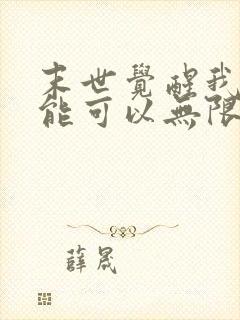 末世覺醒我
能可以無限
薛晟